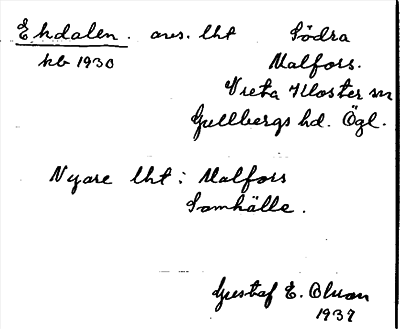 Ekdalen. avs. lht Södra
kb 1930 Malfors.
Vreta Kloster sn
Gullbergs hd. Ögl.
Nyare lht: Malfors
Samhälle.
Gustaf E. Olson
1937